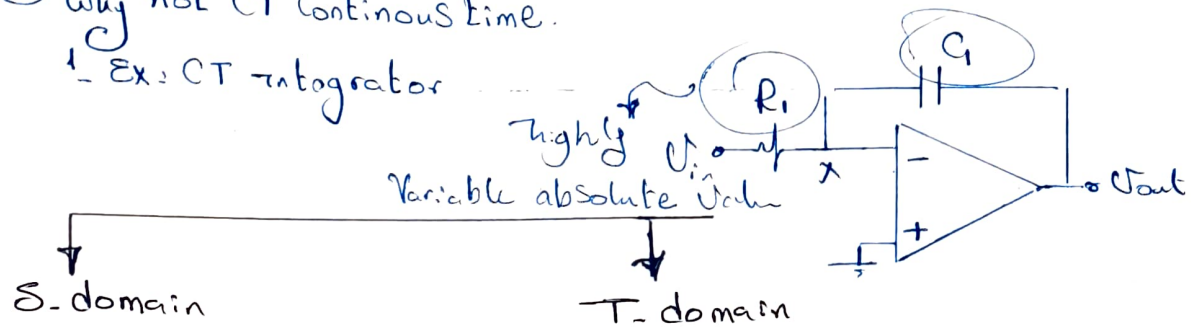 Why not CT Continous time.
1- Ex: CT integrator
highly
Variable absolute value
R1
C1
Vin
x
-
+
Vout
S-domain
T-domain